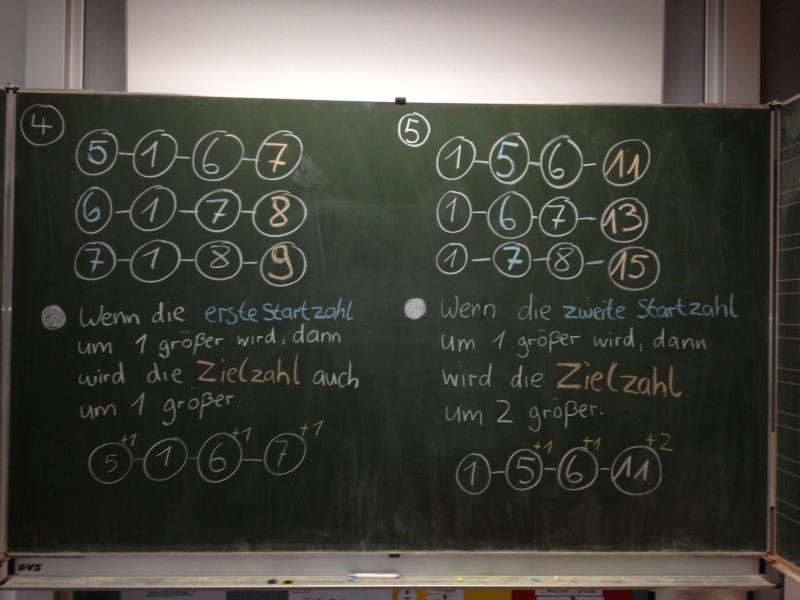 4
5-1-6-7
6-1-7-8
7-1-8-9
Wenn die erste Startzahl
um 1 größer wird, dann
wird die Zielzahl auch
um 1 größer.
+1 +1 +1
5-1-6-7
5
1-5-6-11
1-6-7-13
1-7-8-15
Wenn die zweite Startzahl
um 1 größer wird, dann
wird die Zielzahl
um 2 größer.
+1 +1 +2
1-5-6-11
GVS